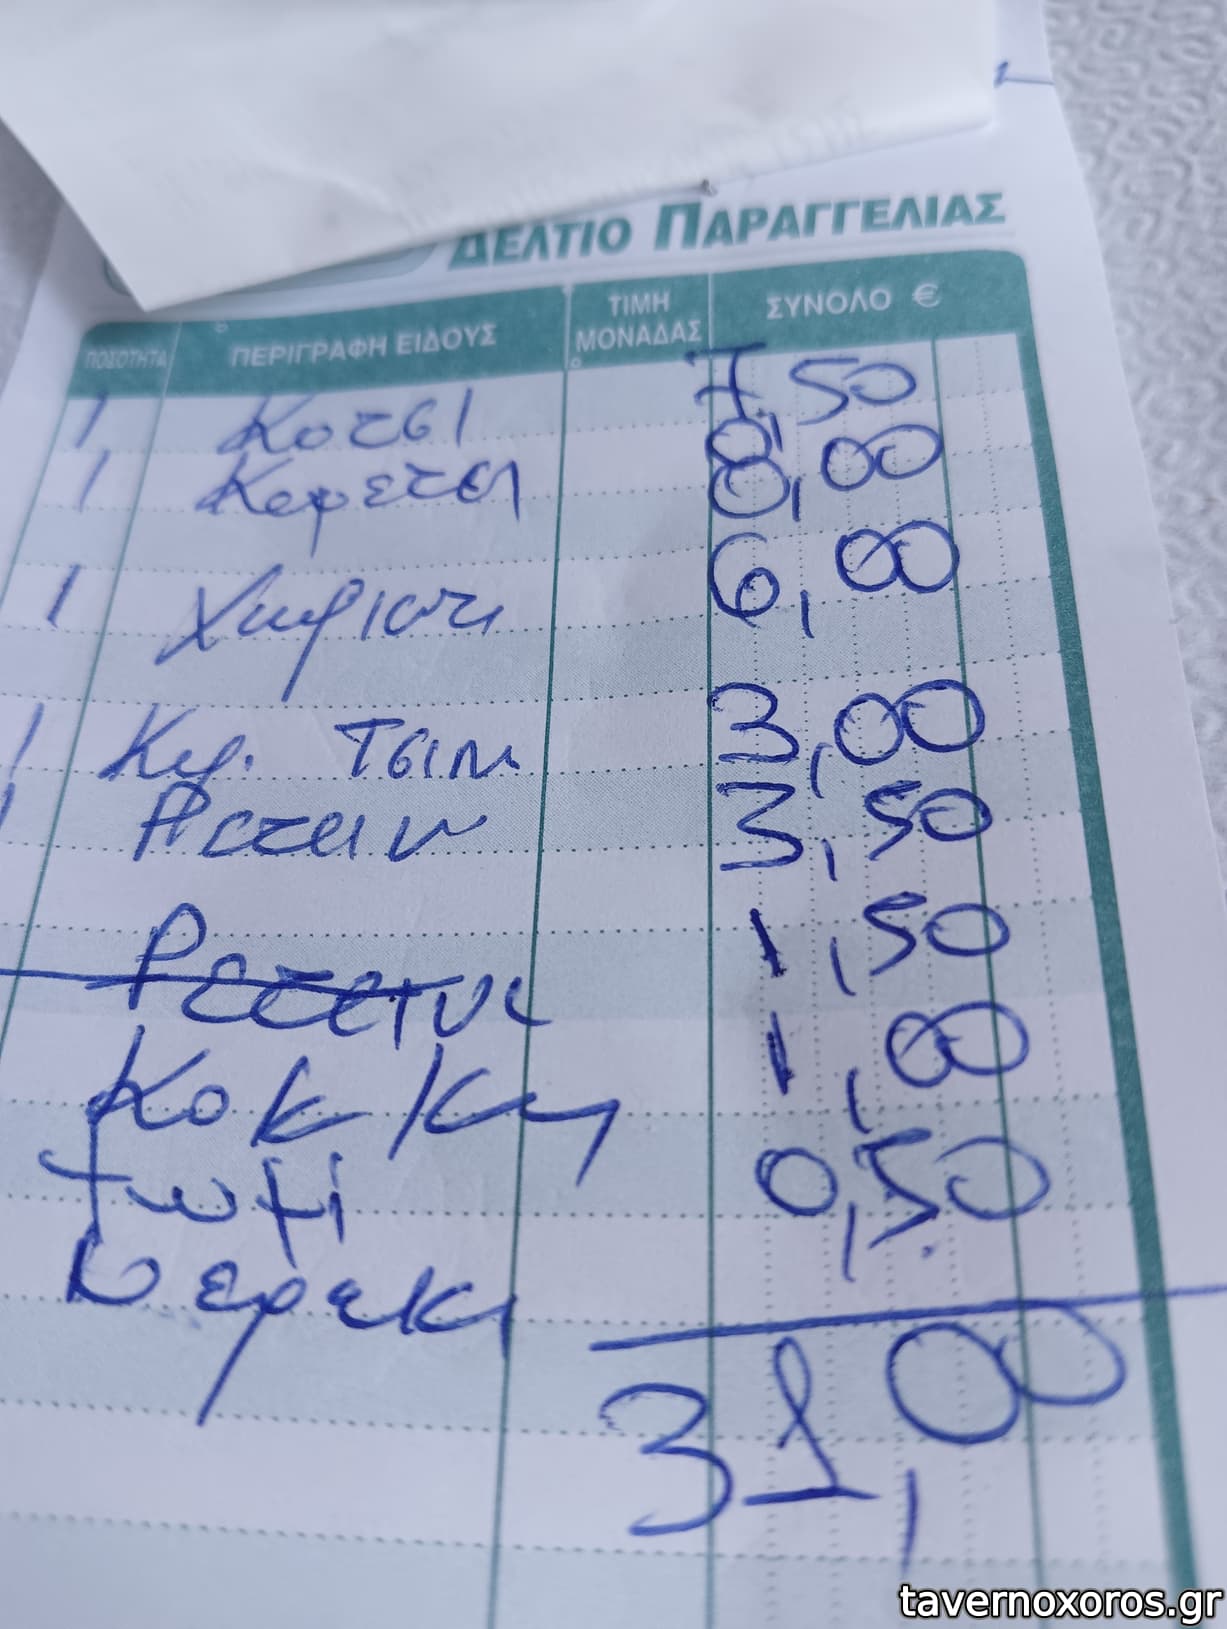 ΔΕΛΤΙΟ ΠΑΡΑΓΓΕΛΙΑΣ
ΠΟΣΟΤΗΤΑ ΠΕΡΙΓΡΑΦΗ ΕΙΔΟΥΣ ΤΙΜΗ ΜΟΝΑΔΑΣ ΣΥΝΟΛΟ €
1 Κοτσι 7,50
1 8,00
1 Χωριατι 6,00
1 Κερ. Τσιπ 3,00
1 Ρετσιν 3,50
Ρετσινα 1,50
Κοκ 1,00
Ψωμί 0,50
Νεράκι
31,00
tavernoxoros.gr